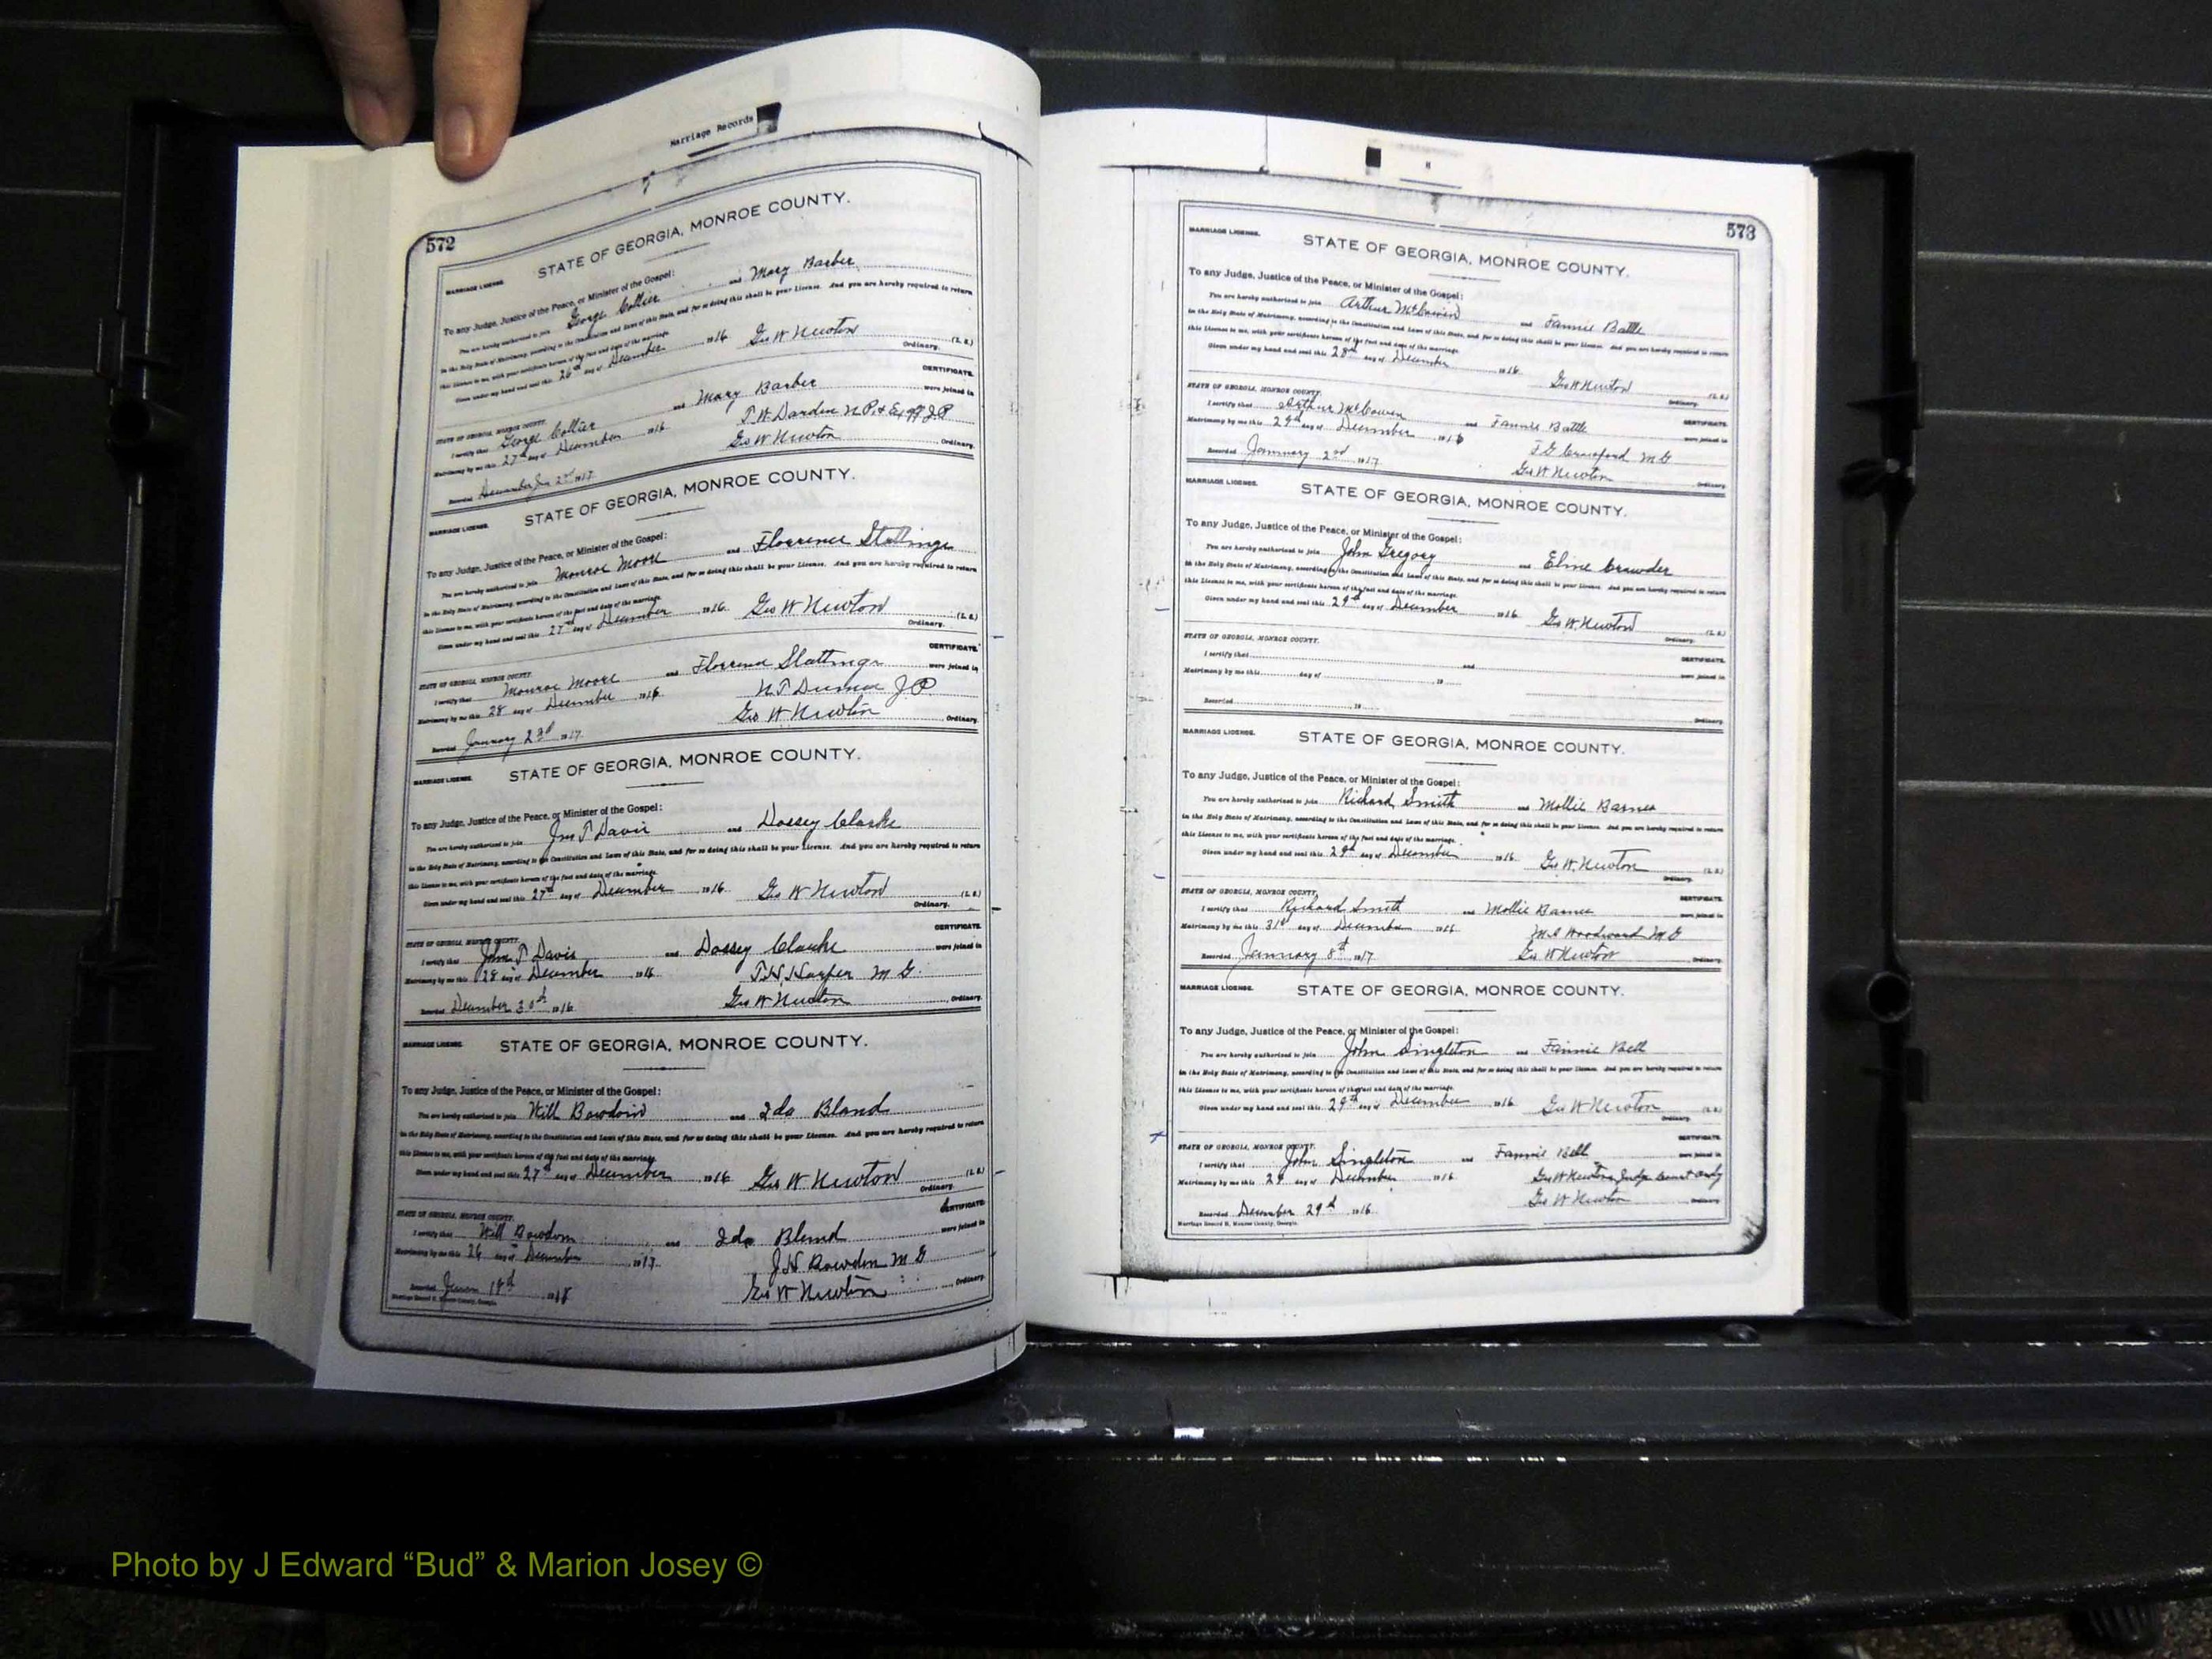 Marriage Records
572
MARRIAGE LICENSE.
STATE OF GEORGIA, MONROE COUNTY.
To any Judge, Justice of the Peace, or Minister of the Gospel:
You are hereby authorized to join George Collier and Mary Barber
in the Holy State of Matrimony, according to the Constitution and Laws of this State, and for so doing this shall be your License. And you are hereby required to return
this License to me, with your certificate hereon of the fact and date of the marriage.
Given under my hand and seal this 26th day of December 1916 Geo W Newton (L. S.)
Ordinary.
CERTIFICATE.
STATE OF GEORGIA, MONROE COUNTY.
I certify that George Collier and Mary Barber were joined in
Matrimony by me this 27th day of December 1916 T. W. Darden N.P. & Ex off J.P.
Recorded December Jan 2nd 1917 Geo W Newton Ordinary.
MARRIAGE LICENSE.
STATE OF GEORGIA, MONROE COUNTY.
To any Judge, Justice of the Peace, or Minister of the Gospel:
You are hereby authorized to join Monroe Moore and Florence
in the Holy State of Matrimony, according to the Constitution and Laws of this State, and for so doing this shall be your License. And you are hereby required to return
this License to me, with your certificate hereon of the fact and date of the marriage.
Given under my hand and seal this 27th day of December 1916 Geo W Newton (L. S.)
Ordinary.
CERTIFICATE.
STATE OF GEORGIA, MONROE COUNTY.
I certify that Monroe Moore and Florence were joined in
Matrimony by me this 28 day of December 1916 J P
Recorded January 23d 1917 Geo W Newton Ordinary.
MARRIAGE LICENSE.
STATE OF GEORGIA, MONROE COUNTY.
To any Judge, Justice of the Peace, or Minister of the Gospel:
You are hereby authorized to join Jno T Davis and Dossey Clarke
in the Holy State of Matrimony, according to the Constitution and Laws of this State, and for so doing this shall be your License. And you are hereby required to return
this License to me, with your certificate hereon of the fact and date of the marriage.
Given under my hand and seal this 27th day of December 1916 Geo W Newton (L. S.)
Ordinary.
CERTIFICATE.
STATE OF GEORGIA, MONROE COUNTY.
I certify that John T Davis and Dossey Clarke were joined in
Matrimony by me this 28 day of December 1916 T. H. Harper M G.
Recorded December 30th 1916 Geo W Newton Ordinary.
MARRIAGE LICENSE.
STATE OF GEORGIA, MONROE COUNTY.
To any Judge, Justice of the Peace, or Minister of the Gospel:
You are hereby authorized to join Will Bowdoin and Ida Bland
in the Holy State of Matrimony, according to the Constitution and Laws of this State, and for so doing this shall be your License. And you are hereby required to return
this License to me, with your certificate hereon of the fact and date of the marriage.
Given under my hand and seal this 27th day of December 1916 Geo W Newton (L. S.)
Ordinary.
CERTIFICATE.
STATE OF GEORGIA, MONROE COUNTY.
I certify that Will Bowdoin and Ida Bland were joined in
Matrimony by me this 26 day of December 1917 J. H. Bowden M G
Recorded 18 1918 Geo W Newton Ordinary.
Marriage Record H, Monroe County, Georgia.
573
MARRIAGE LICENSE.
STATE OF GEORGIA, MONROE COUNTY.
To any Judge, Justice of the Peace, or Minister of the Gospel:
You are hereby authorized to join Arthur McCowen and Fannie Battle
in the Holy State of Matrimony, according to the Constitution and Laws of this State, and for so doing this shall be your License. And you are hereby required to return
this License to me, with your certificate hereon of the fact and date of the marriage.
Given under my hand and seal this 28th day of December 1916 Geo W Newton (L. S.)
Ordinary.
STATE OF GEORGIA, MONROE COUNTY. CERTIFICATE.
I certify that Arthur McCowen and Fannie Battle were joined in
Matrimony by me this 29th day of December 1916 T G Crawford M G
Recorded January 2nd 1917 Geo W Newton Ordinary.
MARRIAGE LICENSE.
STATE OF GEORGIA, MONROE COUNTY.
To any Judge, Justice of the Peace, or Minister of the Gospel:
You are hereby authorized to join John Gregory and Eline Crowder
in the Holy State of Matrimony, according to the Constitution and Laws of this State, and for so doing this shall be your License. And you are hereby required to return
this License to me, with your certificate hereon of the fact and date of the marriage.
Given under my hand and seal this 29th day of December 1916 Geo W. Newton (L. S.)
Ordinary.
STATE OF GEORGIA, MONROE COUNTY. CERTIFICATE.
I certify that and were joined in
Matrimony by me this day of 19
Recorded 19 Ordinary.
MARRIAGE LICENSE.
STATE OF GEORGIA, MONROE COUNTY.
To any Judge, Justice of the Peace, or Minister of the Gospel:
You are hereby authorized to join Richard Smith and Mollie Barnes
in the Holy State of Matrimony, according to the Constitution and Laws of this State, and for so doing this shall be your License. And you are hereby required to return
this License to me, with your certificate hereon of the fact and date of the marriage.
Given under my hand and seal this 29th day of December 1916 Geo W. Newton (L. S.)
Ordinary.
STATE OF GEORGIA, MONROE COUNTY. CERTIFICATE.
I certify that Richard Smith and Mollie Barnes were joined in
Matrimony by me this 31st day of December 1916 Woodward M G
Recorded January 8th 1917 Geo W Newton Ordinary.
MARRIAGE LICENSE.
STATE OF GEORGIA, MONROE COUNTY.
To any Judge, Justice of the Peace, or Minister of the Gospel:
You are hereby authorized to join John Singleton and Fannie Bell
in the Holy State of Matrimony, according to the Constitution and Laws of this State, and for so doing this shall be your License. And you are hereby required to return
this License to me, with your certificate hereon of the fact and date of the marriage.
Given under my hand and seal this 29th day of December 1916 Geo W Newton (L. S.)
Ordinary.
STATE OF GEORGIA, MONROE COUNTY. CERTIFICATE.
I certify that John Singleton and Fannie Bell were joined in
Matrimony by me this 29 day of December 1916 Geo W Newton Judge Court Ordy
Recorded December 29th 1916 Geo W Newton Ordinary.
Marriage Record H, Monroe County, Georgia.
Photo by J Edward “Bud” & Marion Josey ©